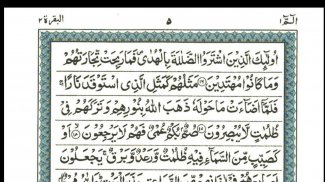 الٓمّٓ ١ ٥ البقرة ٢
اُولٰٓئِكَ الَّذِيْنَ اشْتَرَوُا الضَّلٰلَةَ بِالْهُدٰى فَمَا رَبِحَتْ تِّجَارَتُهُمْ
وَمَا كَانُوْا مُهْتَدِيْنَ ۝١٦ مَثَلُهُمْ كَمَثَلِ الَّذِى اسْتَوْقَدَ نَارًا
فَلَمَّآ اَضَآءَتْ مَا حَوْلَهٗ ذَهَبَ اللّٰهُ بِنُوْرِهِمْ وَتَرَكَهُمْ فِىْ
ظُلُمٰتٍ لَّا يُبْصِرُوْنَ ۝١٧ صُمٌّۢ بُكْمٌ عُمْىٌ فَهُمْ لَا يَرْجِعُوْنَ ۝١٨ اَوْ
كَصَيِّبٍ مِّنَ السَّمَآءِ فِيْهِ ظُلُمٰتٌ وَّرَعْدٌ وَّبَرْقٌ يَجْعَلُوْنَ